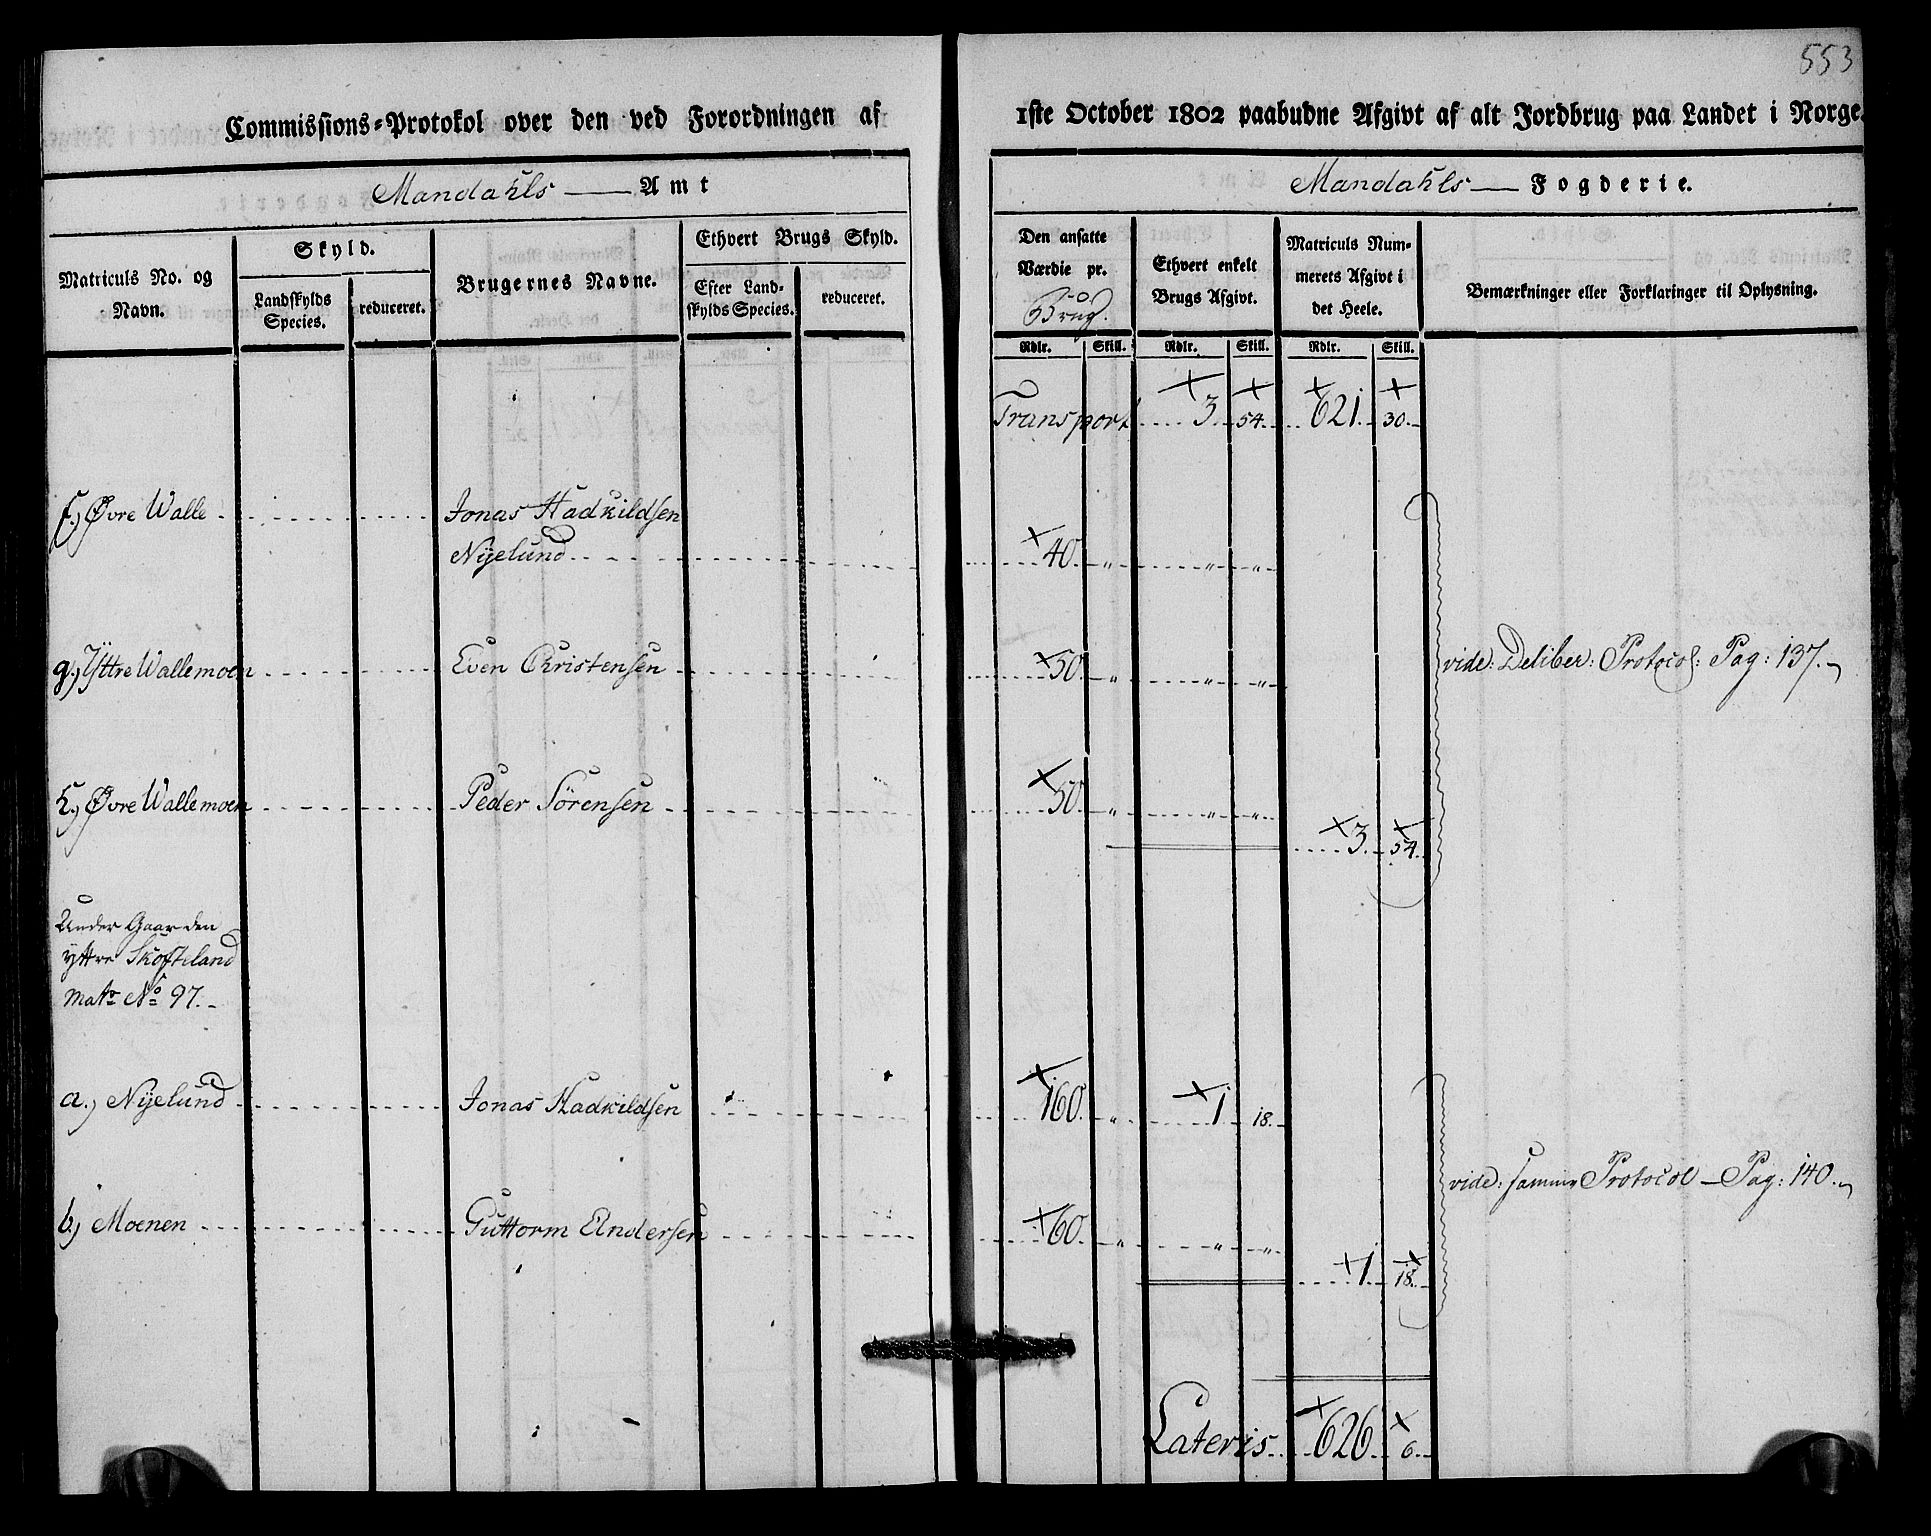 553
Commissions-Protokol over den ved Forordningen af 1ste October 1802 paabudne Afgivt af alt Jordbrug paa Landet i Norge.
Mandahls Amt
Mandahls Fogderie.
Matriculs No. og Navn.
Skyld.
Landskylds Species.
reduceret.
Brugernes Navne.
Ethvert Brugs Skyld.
Efter Landskylds Species.
reduceret.
Den ansatte Værdie pr. Brug.
Ethvert enkelt Brugs Afgivt.
Matriculs Nummerets Afgivt i det Heele.
Bemærkninger eller Forklaringer til Oplysning.
Rdlr. Skill. Rdlr. Skill. Rdlr. Skill.
Transport 3 54. 621. 30.
f.) Øvre Walle Jonas Hadkildsen
Nyelund 40. " " "
g.) Yttre Wallemoen Even Christensen 50. " " " vide: Deliber: Protocol: Pag: 137.
h.) Øvre Wallemoen Peder Sörensen 50. " " "
3. 54.
Under Gaarden
yttre Skofteland
Matr No 97.
a.) Nyelund Jonas Hadkildsen 160. " 1 18.
vide: samme Protocol Pag: 140.
b.) Moenen Guttorm Andersen 60. " " "
1 18.
Lateris 626. 6.